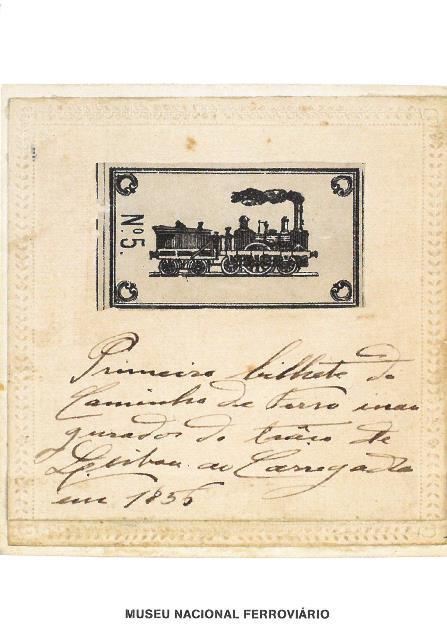 Nº 5.
Primeiro bilhete do
Caminho de Ferro inau
gurados do traço de
Lisboa ao Carregado
em 1856
MUSEU NACIONAL FERROVIÁRIO